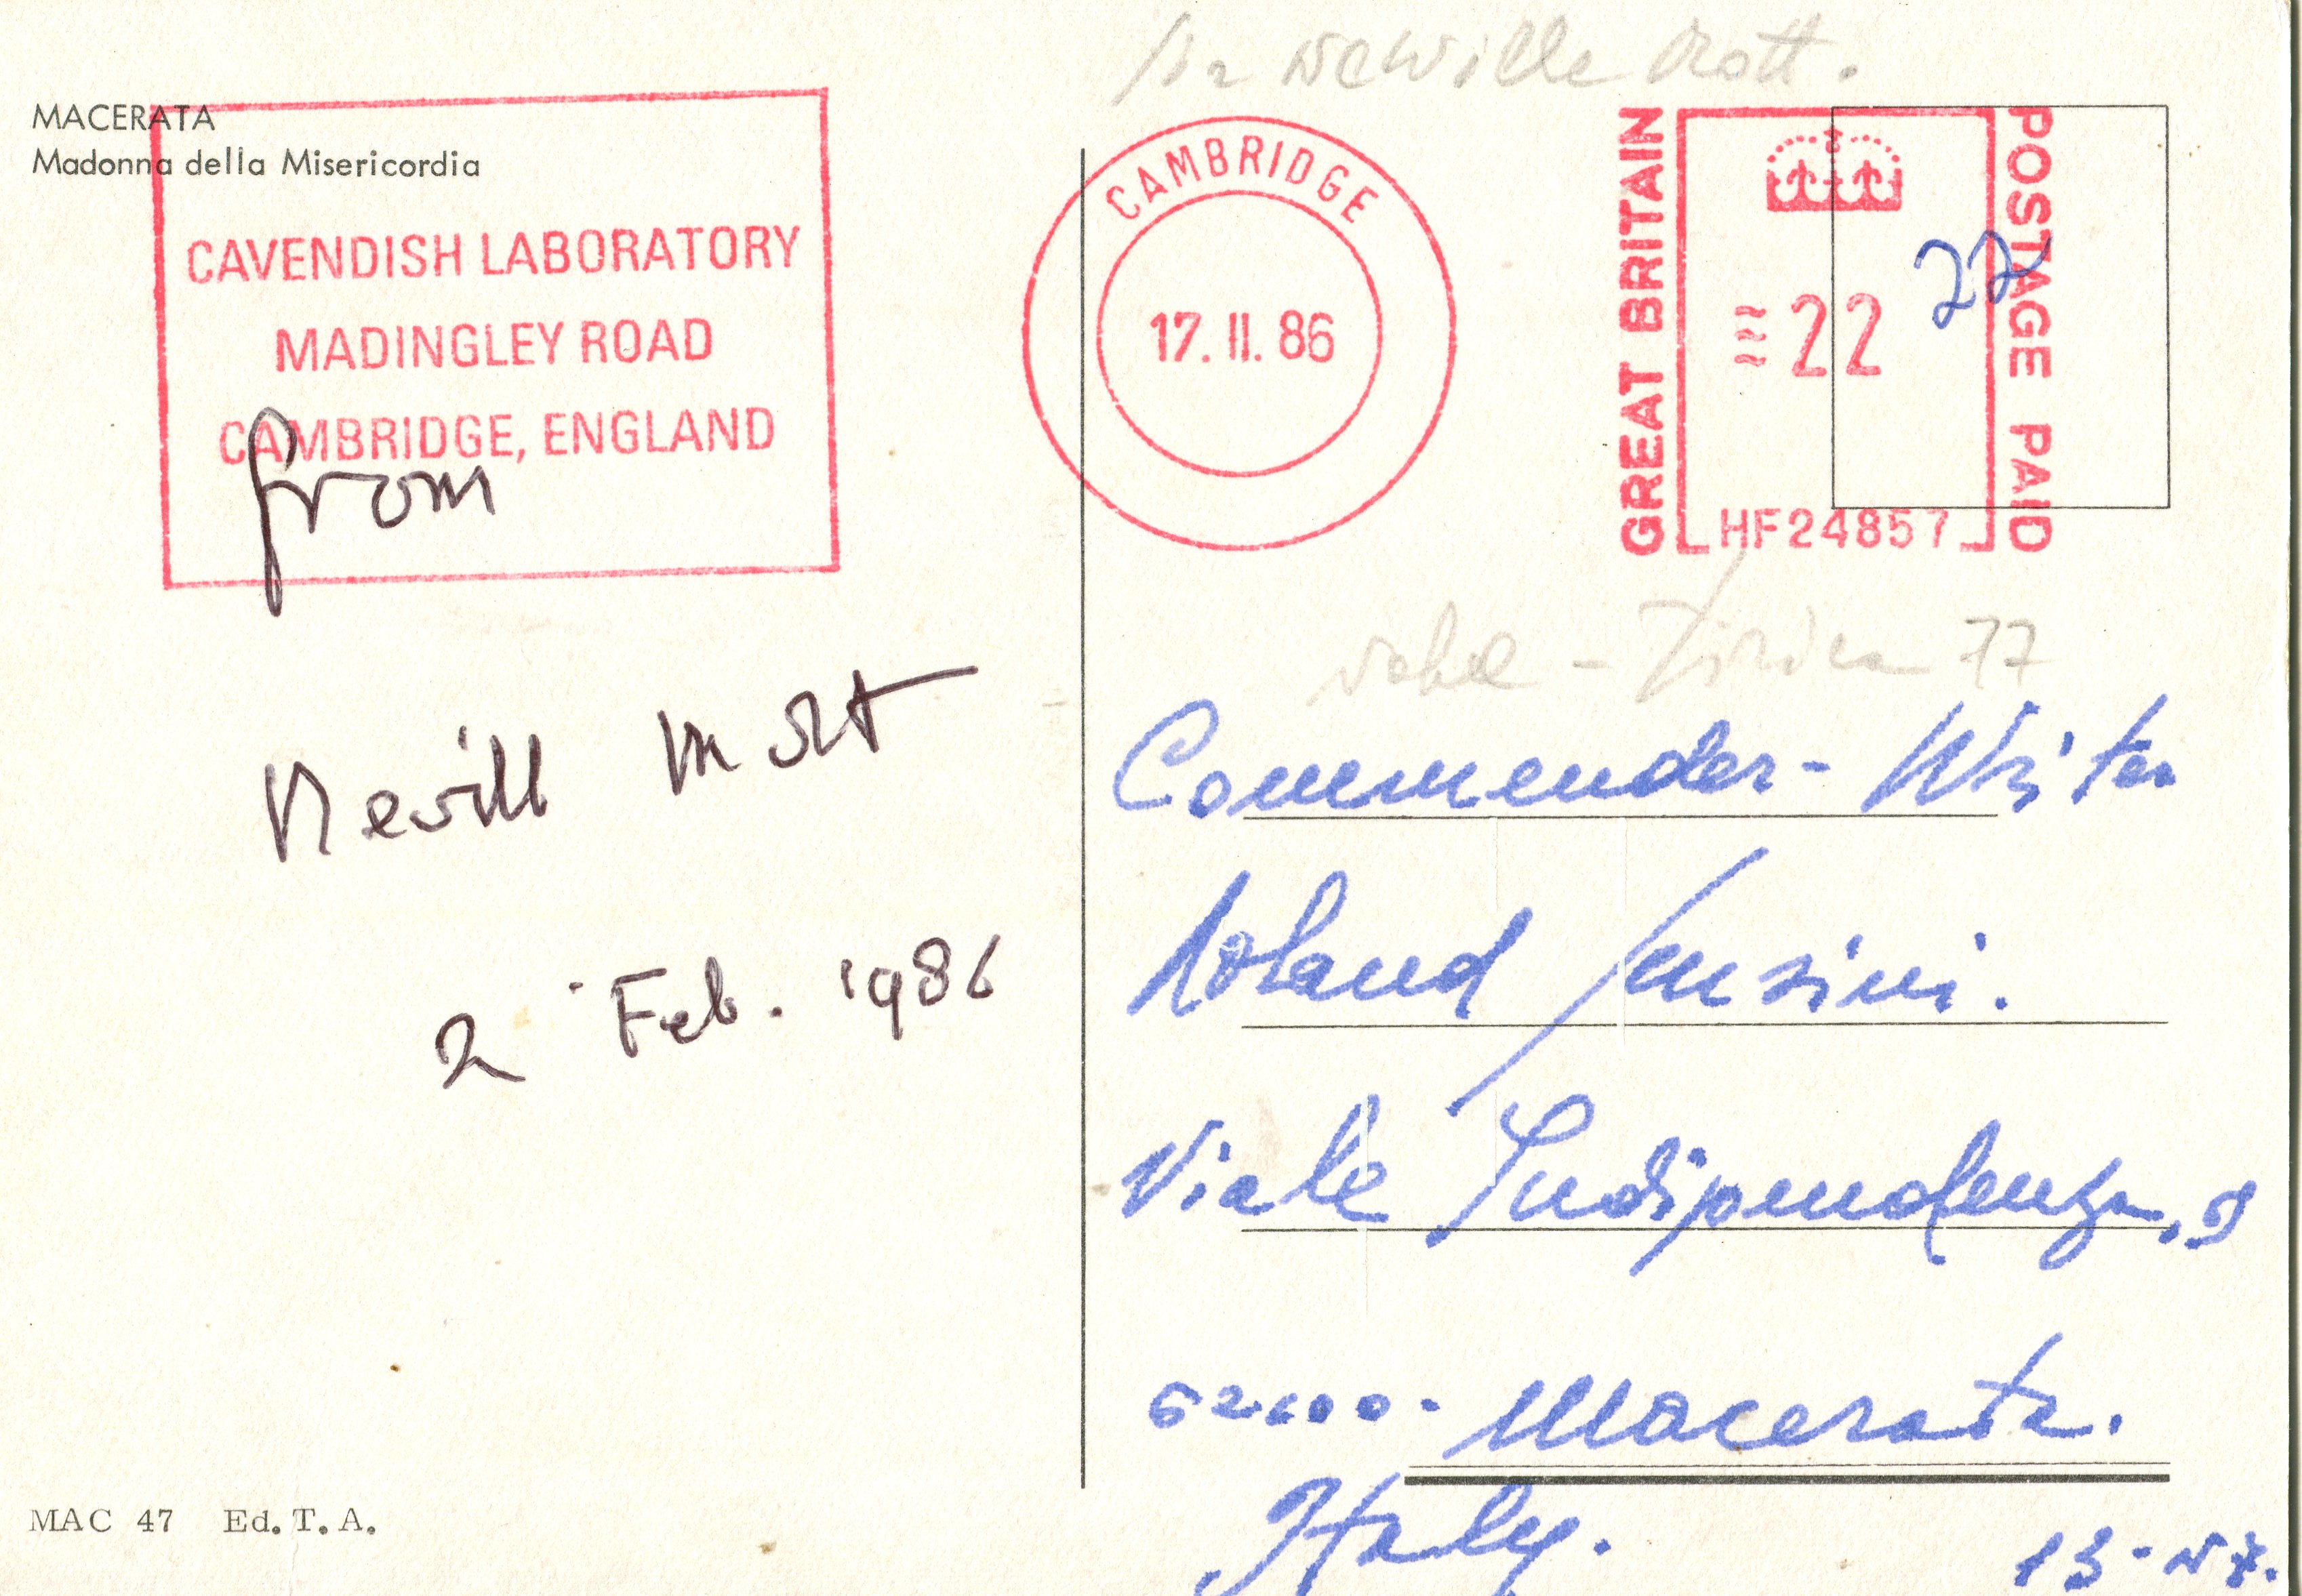 Sir Neville Mott.
MACERATA
Madonna della Misericordia
CAVENDISH LABORATORY
MADINGLEY ROAD
CAMBRIDGE, ENGLAND
from
Nevill Mott
2 Feb. 1986
MAC 47 Ed. T. A.
CAMBRIDGE
17. II. 86
GREAT BRITAIN
22
POSTAGE PAID
HF24857
22
77
Commender - Writer
Roland
Viale Indipendenza,
62100 - Macerata.
Italy.